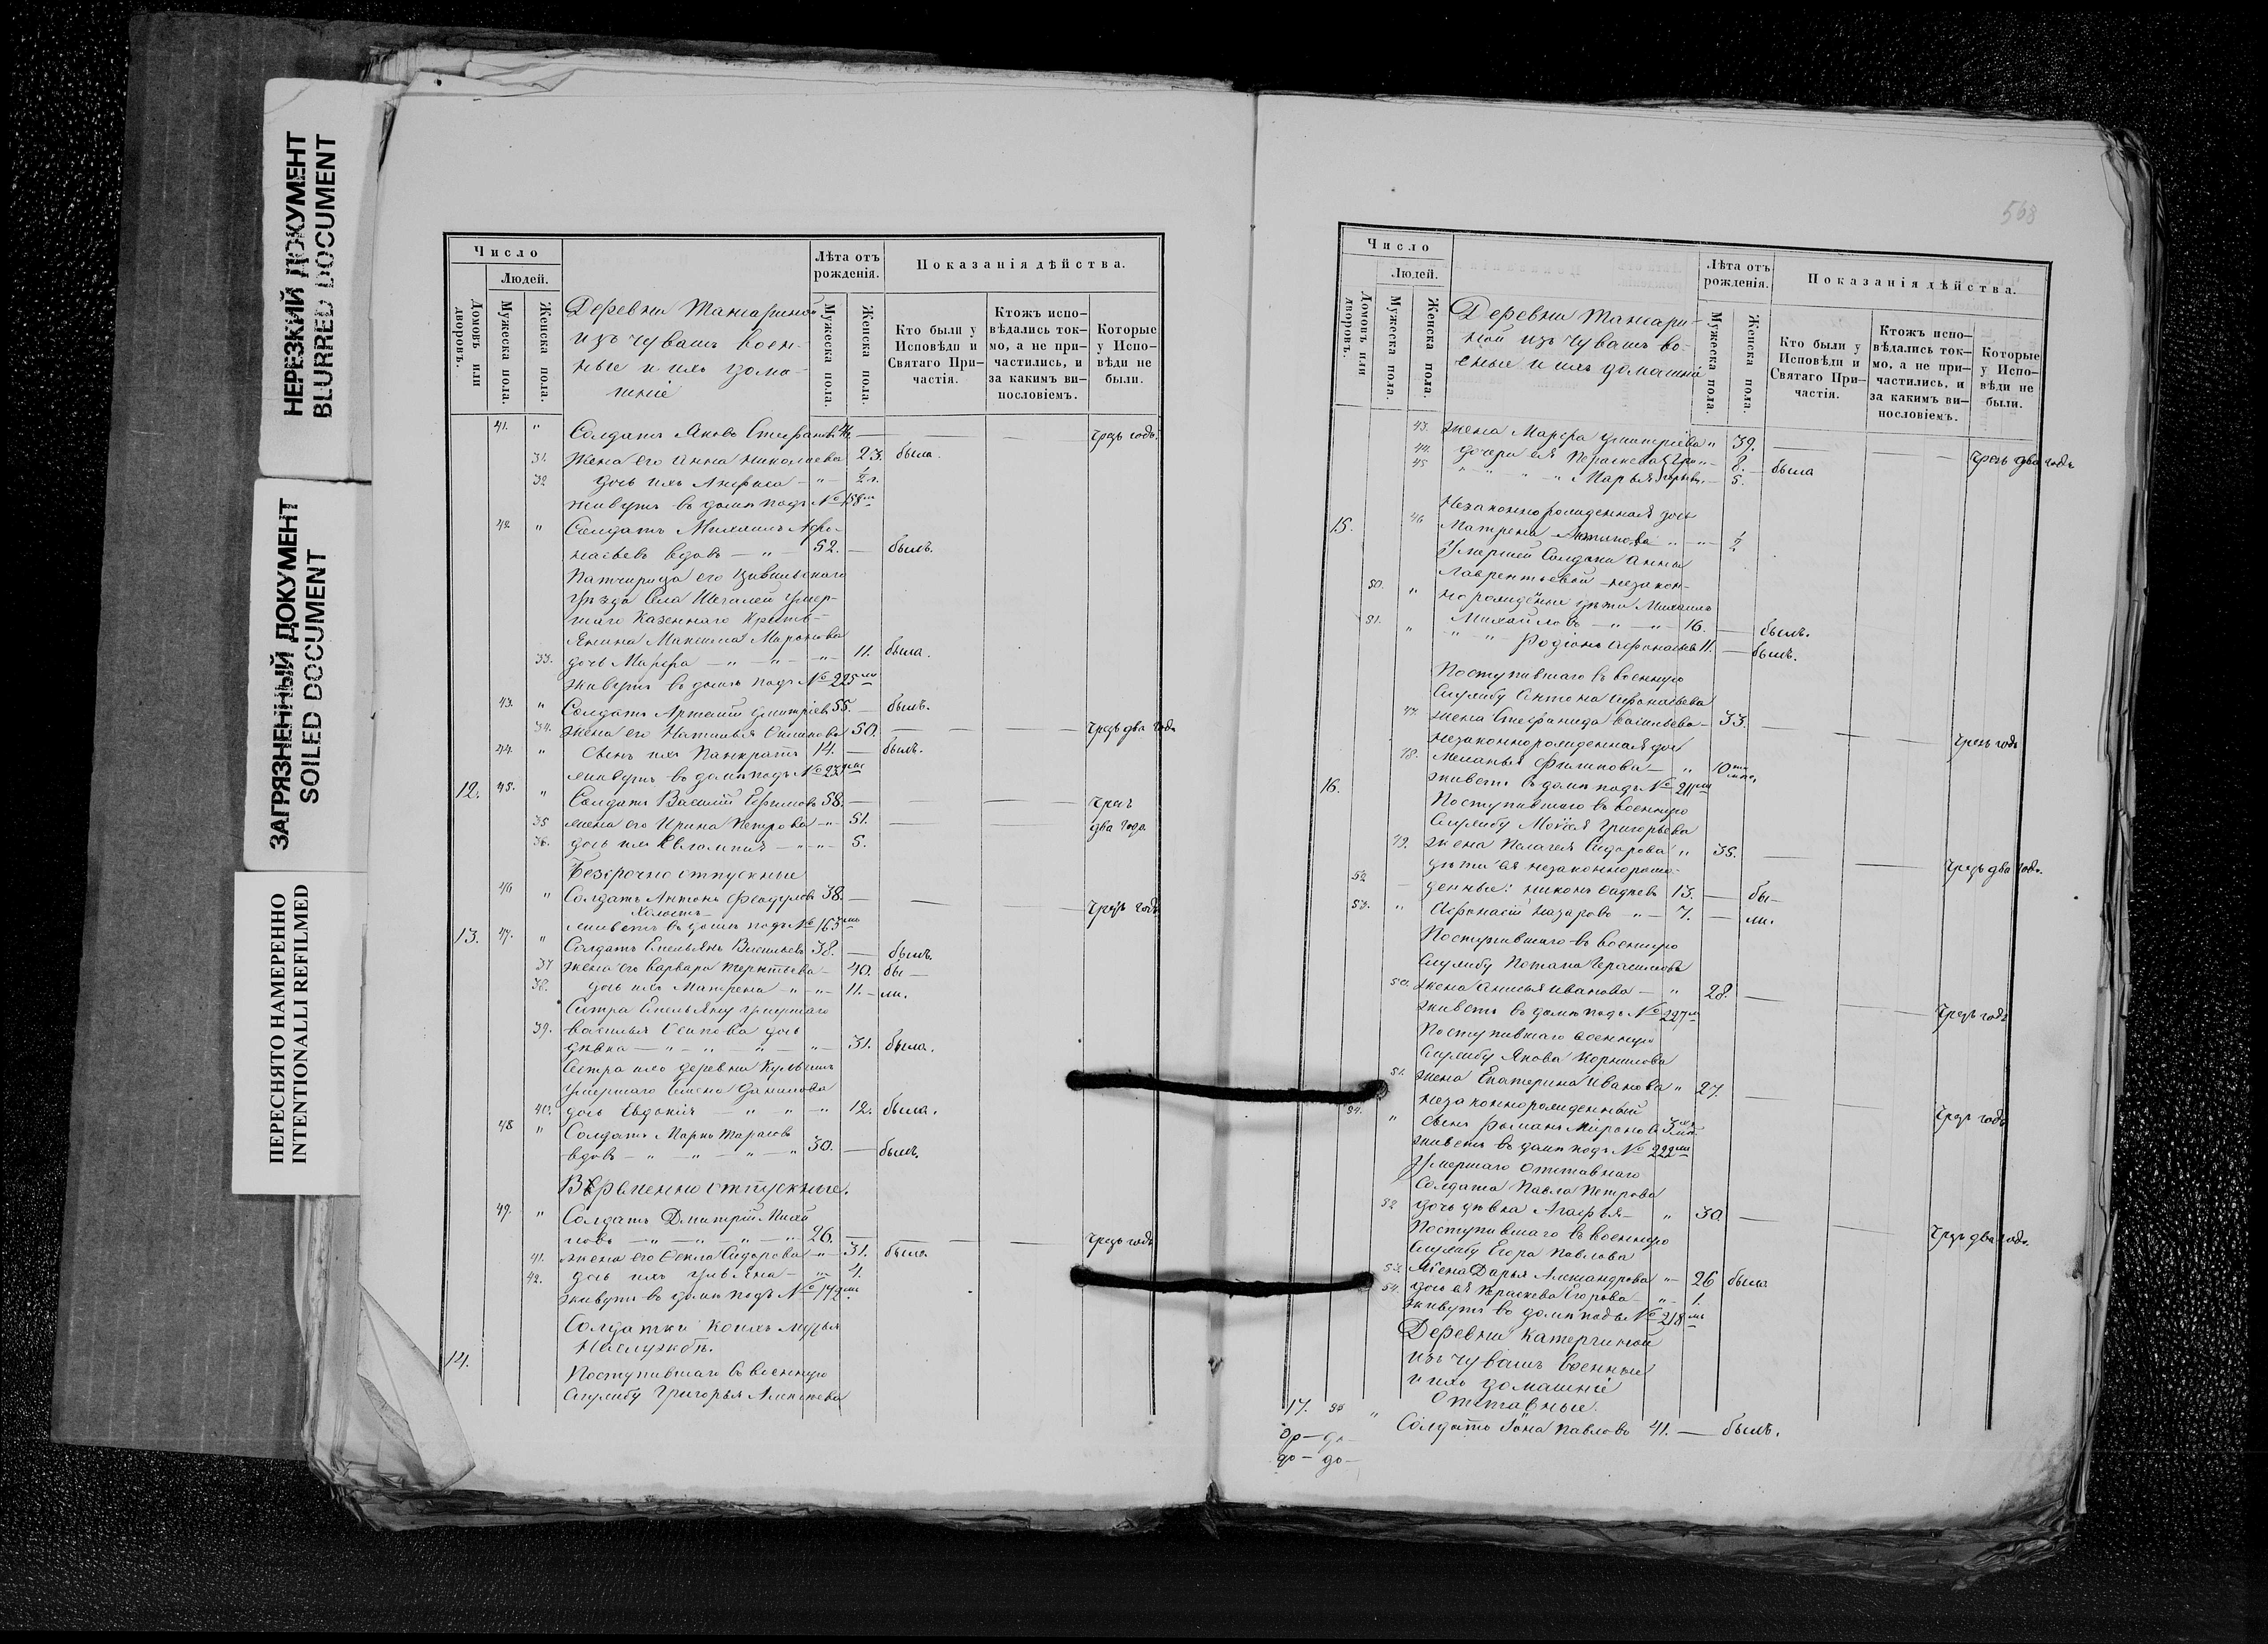 НЕРЕЗКИЙ ДОКУМЕНТ
BLURRED DOCUMENT
ЗАГРЯЗНЕННЫЙ ДОКУМЕНТ
SOILED DOCUMENT
ПЕРЕСНЯТО НАМЕРЕННО
INTENTIONALLI REFILMED
Число
Домовъ или дворовъ.
Людей.
Мужеска пола.
Женска пола.
Деревни Танкариной
изъ чувашъ воен-
ные и ихъ дома-
шніе
Лѣта отъ рожденія.
Мужеска пола.
Женска пола.
Показанія дѣйства.
Кто были у Исповѣди и Святаго При-частія.
Ктожъ испо-вѣдались ток-мо, а не при-частились, и за какимъ ви-пословіемъ.
Которые у Испо-вѣди не были.
41. " Солдатъ Яковъ Стефановъ — — — Чрезъ годъ.
31. Жена его Анна Николаева 23. была.
32 дочь ихъ — " — ½ г.
живутъ въ домѣ подъ № 158
42. " Солдатъ Михаилъ Афа-
насьевъ вдовъ — " — 52. — былъ.
Патчерица его Цивильскаго
уѣзда Села умер-
шаго Казеннаго Крестья-
янина Максима Миронова
33. дочь Марфа — " — " — " — 11. была.
живутъ въ домѣ подъ № 225
43. " Солдатъ Артемій Дмитріевъ 55. — былъ.
34. Жена его Наталья Осипова 50. — — — Чрезъ два года
44. " Сынъ ихъ Панкратъ 14. — былъ.
живутъ въ домѣ подъ №
12. 45. " Солдатъ Василій Ефимовъ 58. — — — Чрезъ
35 жена его Ирина Петрова — " — 51. — два года.
36. дочь ихъ Евлампія — " — " — 5.
Безсрочно отпускные
46 " Солдатъ Антонъ Федуловъ 38. — — — Чрезъ годъ
Холостъ —
живетъ въ домѣ подъ № 163
13. 47. " Солдатъ Емельянъ Васильевъ 38. — былъ.
37 Жена его Варвара Терентьева — 40. бы —
38. дочь ихъ Матрена — " — " — 11. — ли.
Сестра Емельяну умершаго
39. Василья Осипова дочь
дѣвка — " — " — " — " — 31. была.
Сестра изъ деревни
умершаго Данилова
40. дочь Евдокія — " — " — " — 12. была.
48 " Солдатъ Маркъ Тарасовъ
вдовъ — " — " — " — " 30. — былъ.
Временно отпускные.
49. " Солдатъ Дмитрій
новъ — " — " — " — " 26. — — — Чрезъ годъ
41. жена его Ѳекла Сидорова — " — 31. была
42. дочь ихъ Ульяна — " — 4.
живутъ въ домѣ подъ №
Солдатки коихъ мужья
на службѣ.
14. Поступившаго въ военную
службу Григорья Алексѣева
568
Число
Домовъ или дворовъ.
Людей.
Мужеска пола.
Женска пола.
Деревни Танкари-
ной изъ чувашъ во-
енные и ихъ домашніе
Лѣта отъ рожденія.
Мужеска пола.
Женска пола.
Показанія дѣйства.
Кто были у Исповѣди и Святаго При-частія.
Ктожъ испо-вѣдались ток-мо, а не при-частились, и за какимъ ви-нословіемъ.
Которые у Испо-вѣди не были.
43. жена Марфа Дмитріева " 39. — — — Чрезъ два года
44. дочери ея Параскева — 8. — была
45 " " " Марья — 5.
Незаконнорожденная дочь
15. 46 Матрена " — " — ½
Умершей Солдатки Анны
Лаврентьевой незакон-
50. " норожденные дѣти Михаилъ
Михайловъ — " — " — 16. — былъ.
51. " " — " — Родіонъ Афанасьевъ 11. — былъ.
Поступившаго въ военную
службу Антона Афанасьева
47. жена Стефанида Васильева — 33. — — — Чрезъ годъ
незаконнорожденная дочь
48. Меланья Филипова — " 10
16. живетъ въ домѣ подъ № 211
Поступившаго въ военную
службу Моисея Григорьева
49. жена Пелагея Сидорова " 35. — — — Чрезъ два года.
дѣти ея незаконнорож-
52 — денные: Никонъ 13. — бы —
53. " Афанасій Назаровъ " — 7. — ли.
Поступившаго въ военную
службу Потапа Герасимова
50. жена Анисья Иванова — " 28. — — — Чрезъ годъ
живетъ въ домѣ подъ № 227
Поступившаго военную
службу Якова Корнилова
51. жена Екатерина Иванова " 27. — — — Чрезъ годъ
незаконнорожденный
54. " сынъ Романъ Мироновъ 3
живетъ въ домѣ подъ № 222
Умершаго отставнаго
Солдата Павла Петрова
52 дочь дѣвка Агафья — " 30. — — — Чрезъ два года.
Поступившаго въ военную
службу Егора Павлова
53. Жена Дарья Александрова " — 26 была
54. дочь ея Параскева Егорова — " — 1.
живутъ въ домѣ подъ № 218
Деревни Катергиной
изъ чувашъ военные
и ихъ домашніе
Отставные.
17. " Солдатъ Іона Павловъ 41. — былъ.